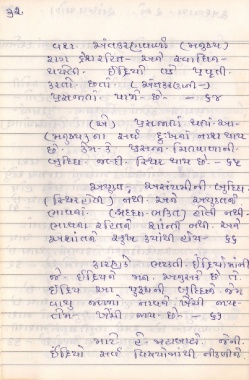 ૩૨.
વશ અંતઃકરણવાળો (મનુષ્ય)
રાગ દ્વેષરહિત અને સ્વાધિન
થયેલી ઈંદ્રિયો વડે પ્રવૃત્તિ
કરતો છતાં (અંતઃકરણની)
પ્રસન્નતા પામે છે. - ૬૪
(એ) પ્રસન્નતા થતાં આ
(મનુષ્ય)ના સર્વ દુઃખનો નાશ થાય
છે. કેમ કે પ્રસન્ન ચિત્તવાળાની
બુદ્ધિ જલ્દી સ્થિર થાય છે - ૬૫
અયુક્ત
(સ્થિર હોતી) નથી. અને અયુક્તને
ભાવના હોતી નથી.
ભાવના રહિતને શાંતિ નથી. અને
અશાંતને સુખ ક્યાંથી હોય - ૬૬
કારણકે ભટકતી ઈંદ્રિયોમાંની
જે ઈંદ્રિયને મન અનુસરે છે તે
ઈંદ્રિય આ પુરૂષની બુદ્ધિને જેમ
વાયુ નાવને ખેંચી જાય
તેમ ખેંચી જાય છે - ૬૭
માટે હે મહાબાહો જેની
ઈંદ્રિયો સર્વ વિષયોમાંથી